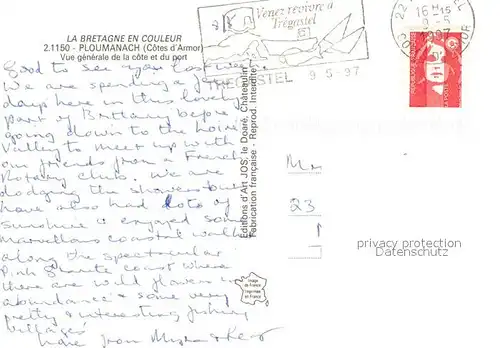 LA BRETAGNE EN COULEUR
2.1150 - PLOUMANACH (Côtes d'Armor)
Vue générale de la côte et du port
Good to see you last week.
We are spending a few
days here in this lovely
part of Brittany before
going down to the Loire
Valley to meet up with
our friends from a French
Rotary club. We are
dodging the showers but
have also had lots of
sunshine & enjoyed some
marvellous coastal walks
along the spectacular
Pink Granite coast where
there are wild flowers in
abundance & some very
pretty & interesting fishing
villages
Love from
Editions d'Art JOS, le Doaré, Châteaulin
Fabrication française - Reprod. Interdite
Image de France
Imprimée en France
Venez revivre à
Trégastel
TREGASTEL 9-5-97
22
16 H 15
9-5
1997
REPUBLIQUE FRANÇAISE
Mr
23
privacy protection
Datenschutz